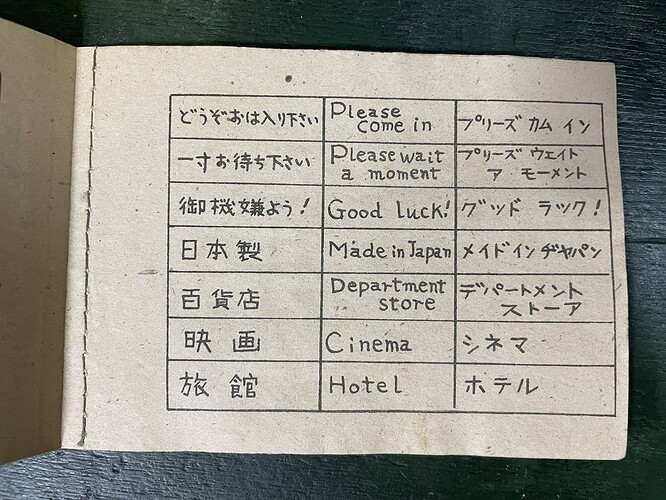 どうぞおは入り下さい
Please
come in
プリーズ カム イン
一寸お待ち下さい
Please wait
a moment
プリーズ ウェイト
ア モーメント
御機嫌よう!
Good luck!
グッド ラック!
日本製
Made in Japan
メイドインヂャパン
百貨店
Department
store
デパートメント
ストーア
映画
Cinema
シネマ
旅館
Hotel
ホテル